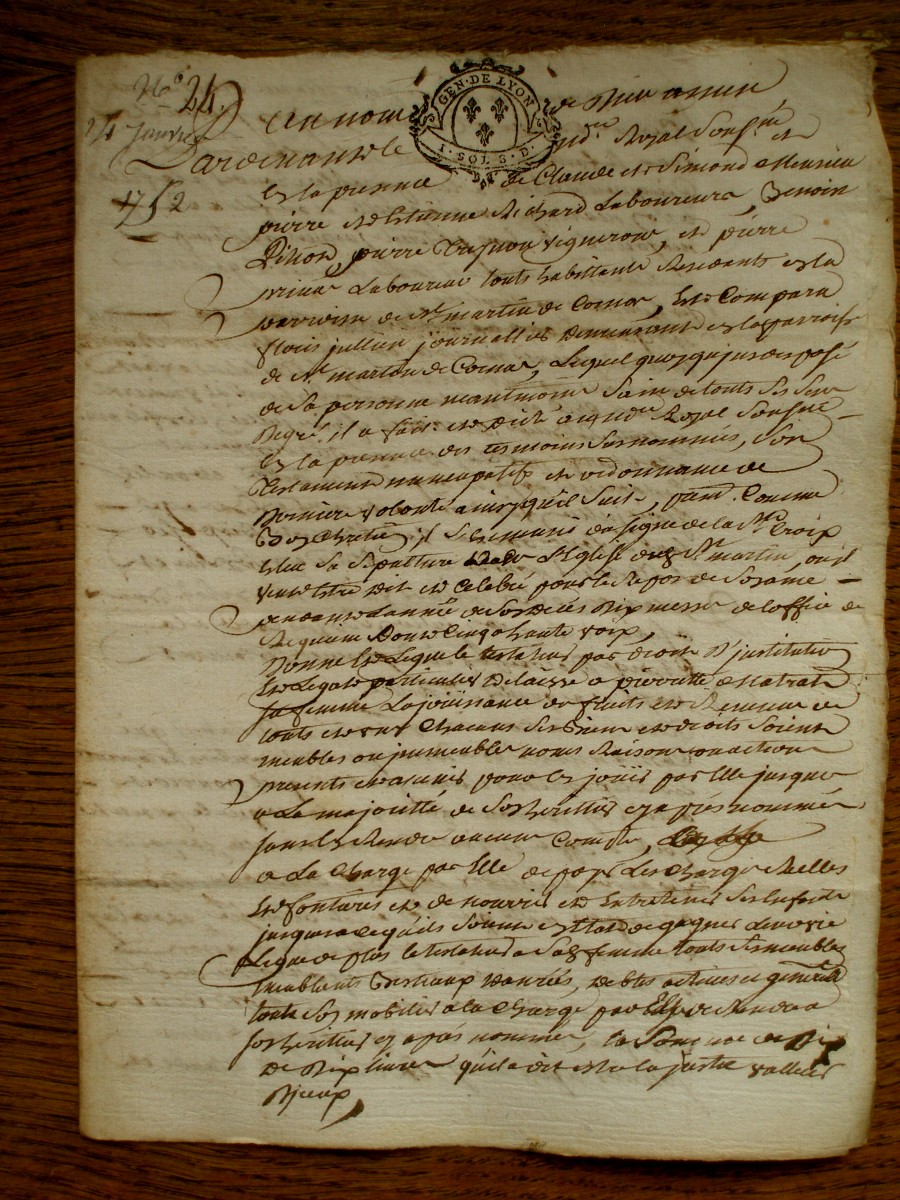 N.º 24.
24 Janvier
1752
GEN·DE LYON
1·SOL 8·D·
Au nom de Dieu amen
Pardevant le nd.re Royal Soussigné et
en la presence de Claude et Simond
pierre et Estienne Richard Laboureurs, Benoin
Pitiod, pierre vigneron, et pierre
Laboureur touts habittants Residants en la
parroisse de St martin de Cornas, Est Comparu
Louis jullien journallier demeurant en la parroisse
de St martin de Cornas, Lequel quoyqu
de sa personne neantmoins Sain de touts ses sens
de gré, il a fait et dicté a nd.re Royal Soussigné
En la presence des tesmoins susnommés, Son
Testament nuncupatif et ordonnance de
Derniere volonté ainsy qu'il suit, Comme
Bon Chretien il s'est muni du signe de la Ste Croix
Eleu sa sepulture l'Eglise dud St martin, ou il
veut Estre dit et Celebré pour le Repos de son ame
pendant L'année de son deces Dix messes de L'office de
Requiem dont Cinq a haute voix,
Donne et Legue le testateur par droit D'institution
Et Legat particulier delaisse a pierrette
sa femme La joüissance des fruits et Revenus de
touts et uns Chacuns ses Biens et droits Soient
meubles ou jmmeubles noms Raisons ou actions
presents et avenir pour en jouir par Elle jusques
a La majorité de ses herittiers cy après nommés
sans En Rendre aucun Compte,
a La Charge par Elle de payer Les Charges Reelles
et de nourrir et Entretenir ses Enfants
jusques a ce qu'ils soient en Etat de gagner Leur vie
Legue de plus le testateur a sad femme touts ses meubles
meublants Bestiaux danrées, debtes actives et generallement
tout son mobilier a la Charge par Elle de Rendre a
ses herittiers cy après nommés, la Somme de Dix
de Dix livres qu'il a dit estre la juste valleur
D'iceux,